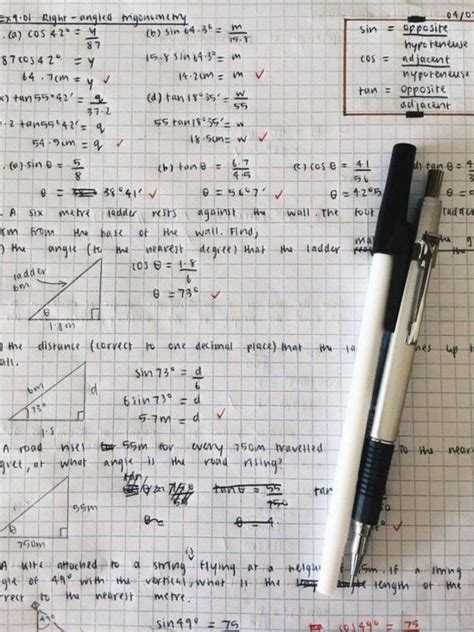 Ex 9.01 Right-angled trigonometry
04/0
sin = opposite
hypoteneuse
cos = adjacent
hypoteneuse
tan = opposite
adjacent
(a) cos 42° = y/87
(b) sin 64.3° = m/15.8
87 cos 42° = y
15.8 sin 64.3° = m
64.7cm = y ✓
14.2cm = m ✓
tan 55°42' = q/37.2
(d) tan 18°35' = w/55
.2 tan 55°42' = q
55 tan 18°35' = w
54.5cm = q ✓
18.5cm = w ✓
(a) sin θ = 5/8
(b) tan θ = 6.7/4.5
(c) cos θ = 41/56
d) tan θ =
θ = 38°41' ✓
θ = 56°7' ✓
θ = 42°
A six metre ladder rests against the wall. The foot ladde
m from the base of the wall. Find,
) the angle (to the nearest degree) that the ladder the g
ladder
6m
θ
1.8m
cos θ = 1.8/6
θ = 73° ✓
the distance (correct to one decimal place) that the la up t
all.
6m
d
73°
1.8
sin 73° = d/6
6 sin 73° = d
5.7m = d ✓
A road rises 55m for every 750m travelled to the near
gree, at what angle is the road rising?
55m
θ
750m
tan θ = 55/750
tan
θ =
θ = 4
A kite attached to a string flying at a height 5m. If a string
gle of 49° with the vertical, what is the length of the
rrect to the nearest metre.
49°
sin 49° = 75
cos 49° = 75